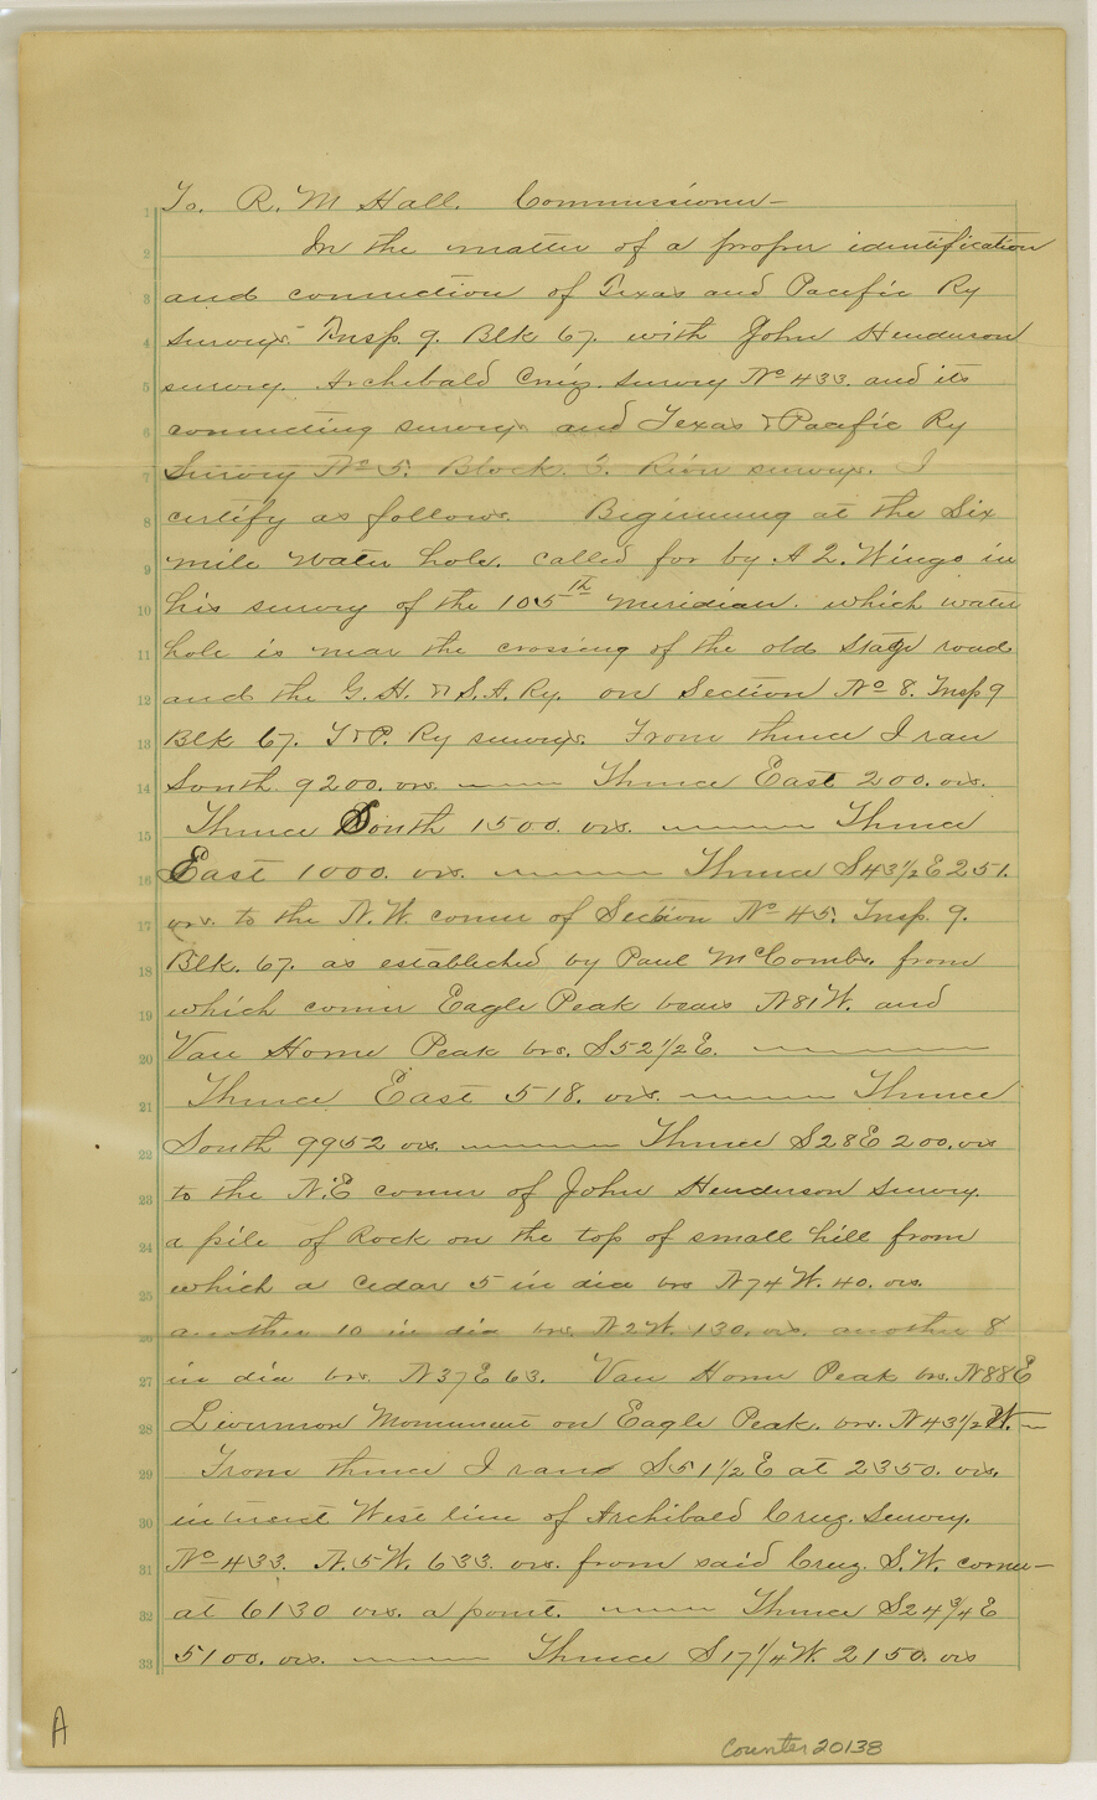 To. R. M Hall. Commissioner—
In the matter of a proper identification
and connection of Texas and Pacific Ry
surveys. Tnsp. 9. Blk 67. with John Henderson
survey. Archibald Cruz. survey No 433. and its
connecting surveys and Texas & Pacific Ry
Survey No 5. Block. 3. surveys. I
certify as follows. Beginning at the Six
mile water hole. called for by A Q. Wingo in
his survey of the 105th Meridian. which water
hole is near the crossing of the old Stage road
and the G. H. & S. A. Ry. on Section No 8. Tnsp 9
Blk 67. T&P. Ry surveys. From thence I ran
South 9200. vrs. —— Thence East 200. vrs.
Thence South 1500. vrs. —— Thence
East 1000. vrs. —— Thence S43½E 251.
vrs. to the N. W. corner of Section No 45. Tnsp. 9.
Blk. 67. as established by Paul McCombs. from
which corner Eagle Peak bears N81W. and
Van Horne Peak brs. S52½E. ——
Thence East 518. vrs. —— Thence
South 9952 vrs. —— Thence S28E 200. vrs
to the N.E corner of John Henderson Survey.
a pile of Rock on the top of small hill from
which a Cedar 5 in dia brs N74W. 40. vrs.
another 10 in dia brs. N2W. 130. vrs. another 8
in dia brs. N37E 63. Van Horne Peak brs. N88E
Livermore Monument on Eagle Peak. brs. N43½W. —
From thence I ran S51½E at 2350. vrs.
intersect West line of Archibald Cruz. Survey.
No 433. N.5W. 633. vrs. from said Cruz. S.W. corner—
at 6130 vrs. a point. —— Thence S24¾E
5100. vrs. —— Thence S17¼W. 2150. vrs
A
Counter 20138
1
2
3
4
5
6
7
8
9
10
11
12
13
14
15
16
17
18
19
20
21
22
23
24
25
26
27
28
29
30
31
32
33